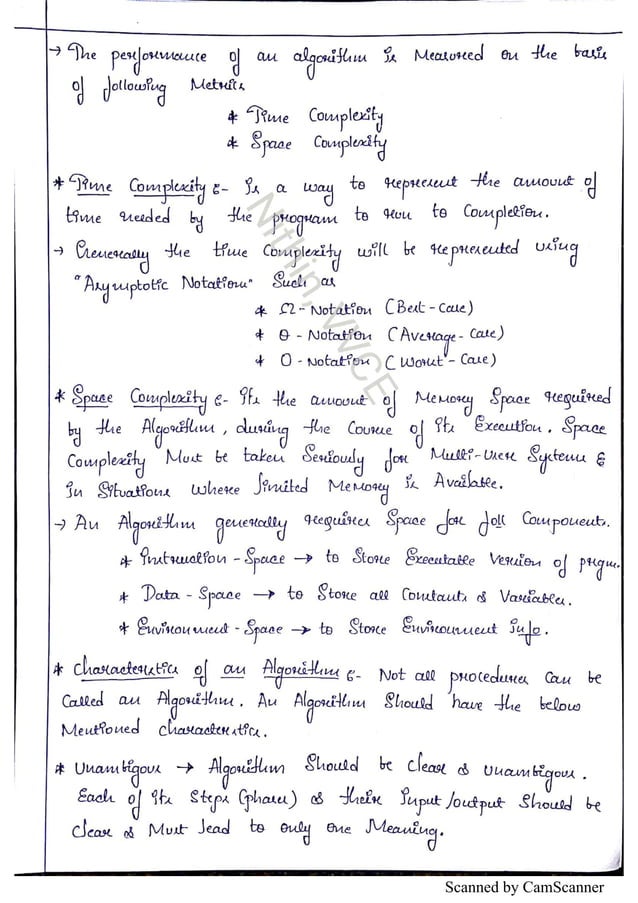 → The performance of an algorithm is Measured on the basis
of following Metrics
* Time Complexity
* Space Complexity
* Time Complexity :- Is a way to represent the amount of
time needed by the program to run to Completion.
→ Generally the time Complexity will be represented using
"Asymptotic Notations" Such as
* Ω - Notation (Best - Case)
* Θ - Notation (Average - Case)
* O - Notation (Worst - Case)
* Space Complexity :- Its the amount of Memory Space required
by the Algorithm, during the Course of Its Execution. Space
Complexity Must be taken Seriously for Multi-User Systems &
in Situations where limited Memory is Available.
→ An Algorithm generally requires Space for foll Components.
* Instruction - Space → to Store Executable Version of prgm.
* Data - Space → to Store all Constants & Variables.
* Environment - Space → to Store Environment Info.
* Characteristics of an Algorithm :- Not all procedures Can be
Called an Algorithm. An Algorithm Should have the below
Mentioned characteristics.
* Unambigous → Algorithm Should be Clear & Unambigous.
Each of Its Steps (phases) & their Input/output Should be
Clear & Must lead to only one Meaning.
Nithin, VVCE
Scanned by CamScanner